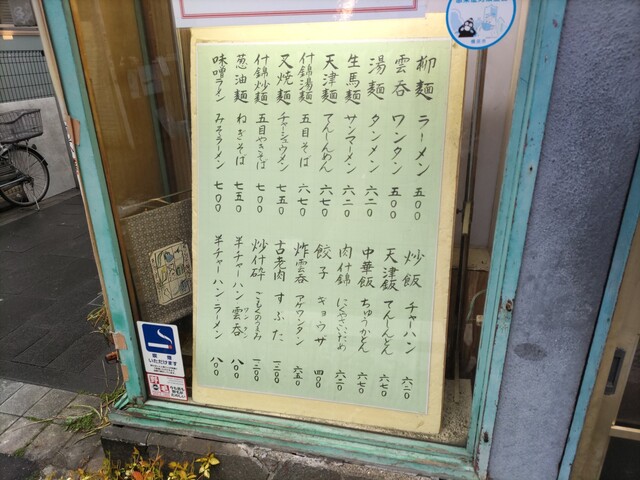 柳麺 ラーメン 五〇〇
雲呑 ワンタン 五〇〇
湯麺 タンメン 六二〇
生馬麺 サンマーメン 六二〇
天津麺 てんしんめん 六七〇
什錦湯麺 五目そば 六七〇
叉焼麺 チャーシュウメン 七五〇
什錦炒麺 五目やきそば 七〇〇
葱油麺 ねぎそば 七五〇
味噌ラーメン みそラーメン 七〇〇
炒飯 チャーハン 六二〇
天津飯 てんしんどん 六七〇
中華飯 ちゅうかどん 六七〇
肉什錦 にくやさいため 六二〇
餃子 ギョウザ 四〇〇
炸雲呑 アゲワンタン 六五〇
古老肉 すぶた 一二〇〇
炒什砕 ごもくのうまみ 一二〇〇
半チャーハン 雲呑 ワンタン 八〇〇
半チャーハン ラーメン 八〇〇
喫煙
いただけます